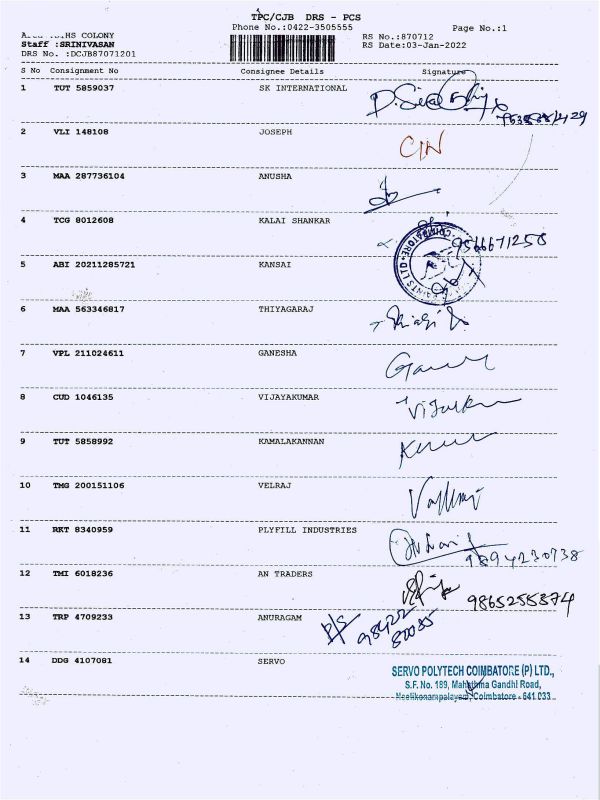 TPC/CJB DRS - PCS
Phone No.:0422-3505555
Page No.:1
COLONY
RS No.:870712
Staff :SRINIVASAN
RS Date:03-Jan-2022
DRS No. :DCJB87071201
S No Consignment No Consignee Details Signature
1 TUT 5859037 SK INTERNATIONAL
2 VLI 148108 JOSEPH
3 MAA 287736104 ANUSHA
4 TCG 8012608 KALAI SHANKAR
9566671258
5 ABI 20211285721 KANSAI
6 MAA 563346817 THIYAGARAJ
7 VPL 211024611 GANESHA
8 CUD 1046135 VIJAYAKUMAR
9 TUT 5858992 KAMALAKANNAN
10 TMG 200151106 VELRAJ
11 RKT 8340959 PLYFILL INDUSTRIES
9894230738
12 TMI 6018236 AN TRADERS
9865255374
13 TRP 4709233 ANURAGAM
98422
80085
14 DDG 4107081 SERVO
SERVO POLYTECH COIMBATORE (P) LTD.,
S.F. No. 189, Mahathma Gandhi Road,
Coimbatore - 641 033